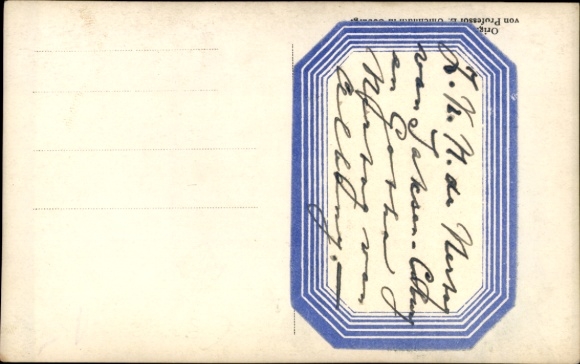 Z. K. H. de Hertog
van Saksen-Coburg
en Gotha
Hertog van
Albany.
Orig.
von Professor E. Uhlenhuth in Coburg.